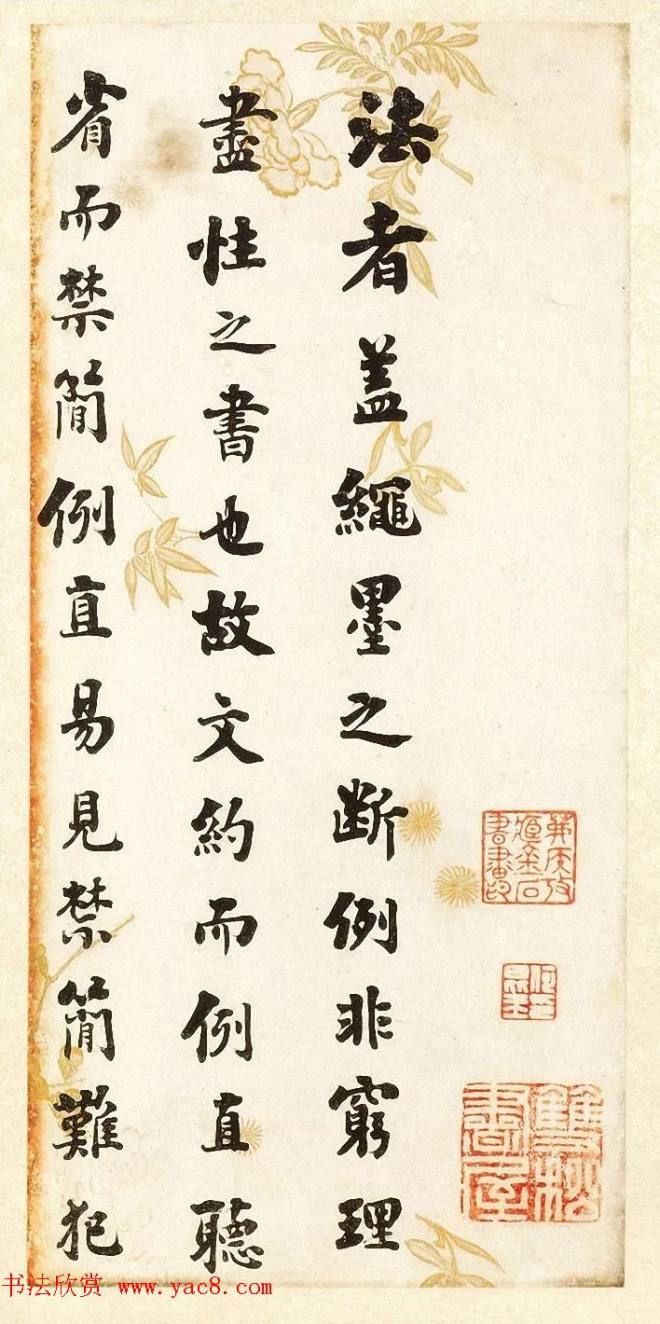 法者蓋繩墨之斷例非窮理
盡性之書也故文約而例直聽
省而禁簡例直易見禁簡難犯
雙松書屋
书法欣赏 www.yac8.com